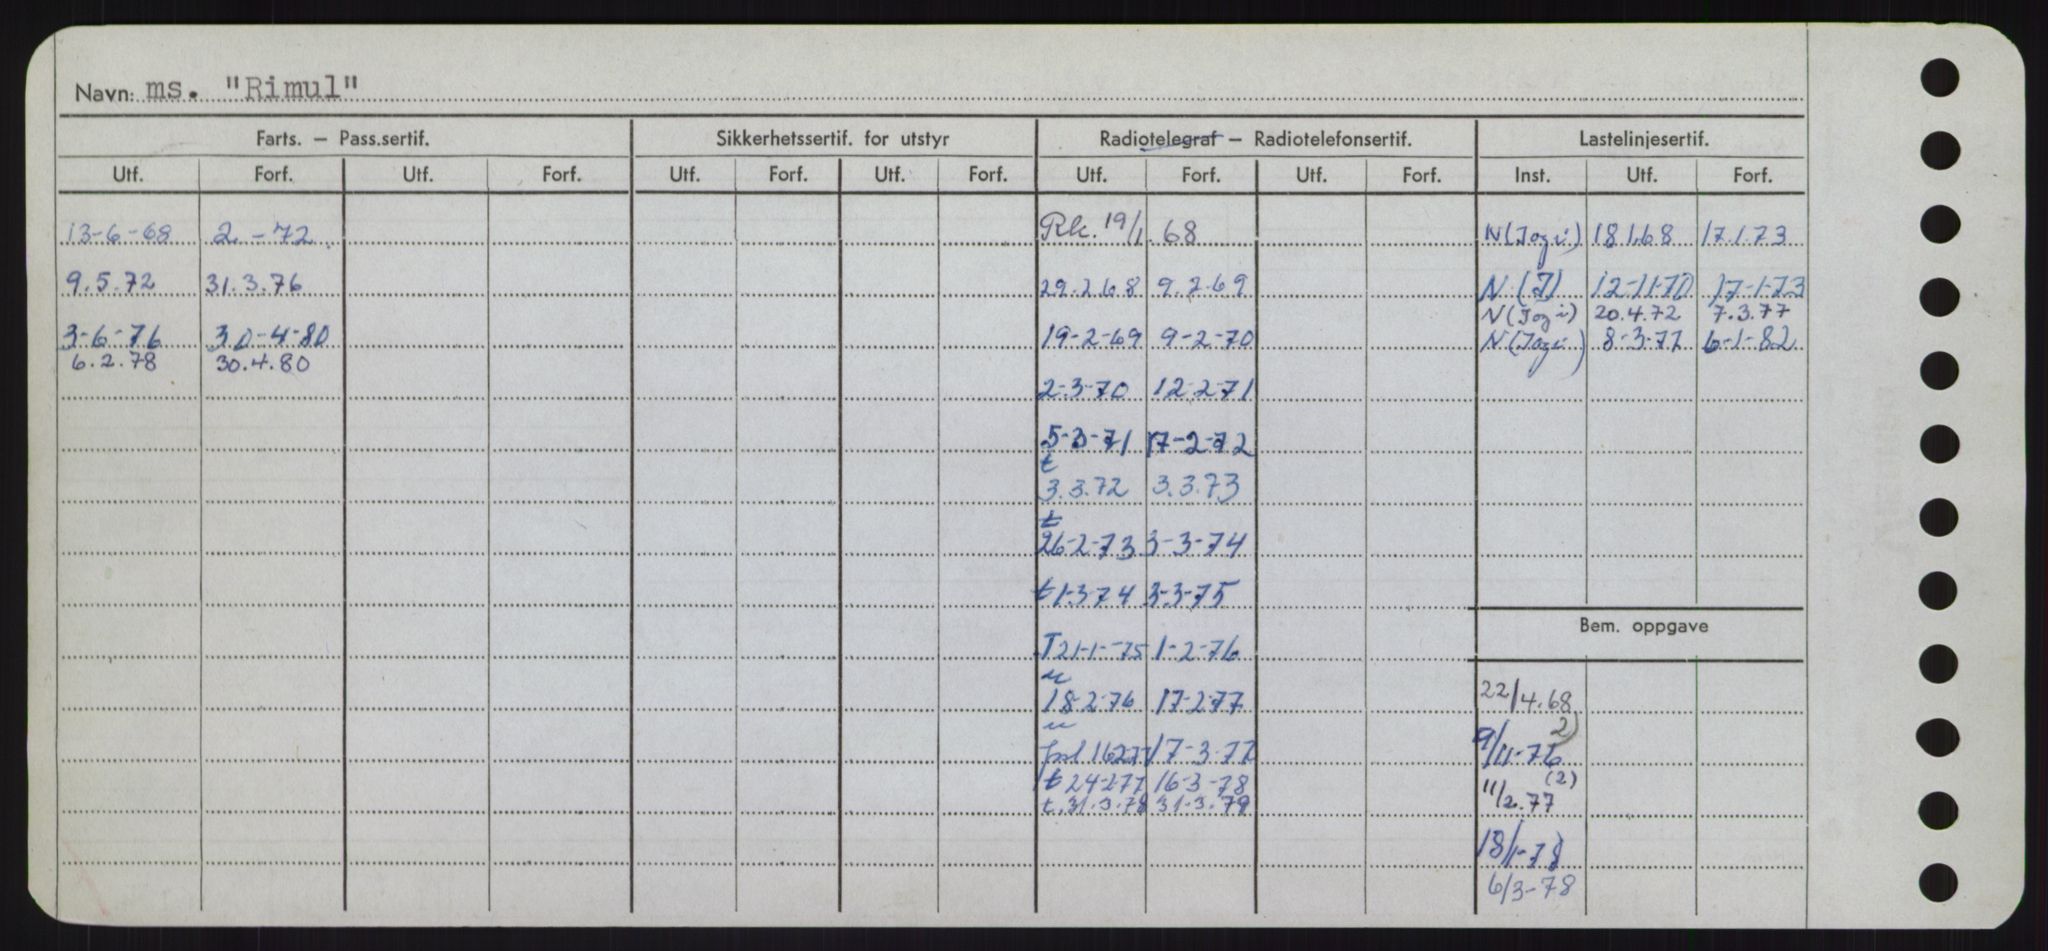 Navn: ms. "Rimul"
Farts. — Pass.sertif. Sikkerhetssertif. for utstyr Radiotelegraf — Radiotelefonsertif. Lastelinjesertif.
Utf. Forf. Utf. Forf. Utf. Forf. Utf. Forf. Utf. Forf. Utf. Forf. Inst. Utf. Forf.
13-6-68 2-72 Rk. 19/1. 68 N (Jogi) 18 1.68 17.1.73
9.5.72 31.3.76 29.2.68 9.2.69 N (J) 12-11-70 17-1-73
N (Jogi) 20.4.72 7.3.77
3-6-76 30-4-80 19-2-69 9-2-70 N (Jogi) 8-3-77 6-1-82
6.2.78 30.4.80
2-3-70 12-2-71
5-3-71 17-2-72
t
3.3.72 3.3.73
t
26-2-73 3-3-74
t 1-3-74 3-3-75
Bem. oppgave
T 21-1-75 1-2-76
22/4.68
18-2-76 17-2-77
2)
9/11-76
16277 17-3-77
t 24-2-77 16-3-78 (2)
11/2.77
t. 31.3.78 31.3.79
18/1-78
6/3-78